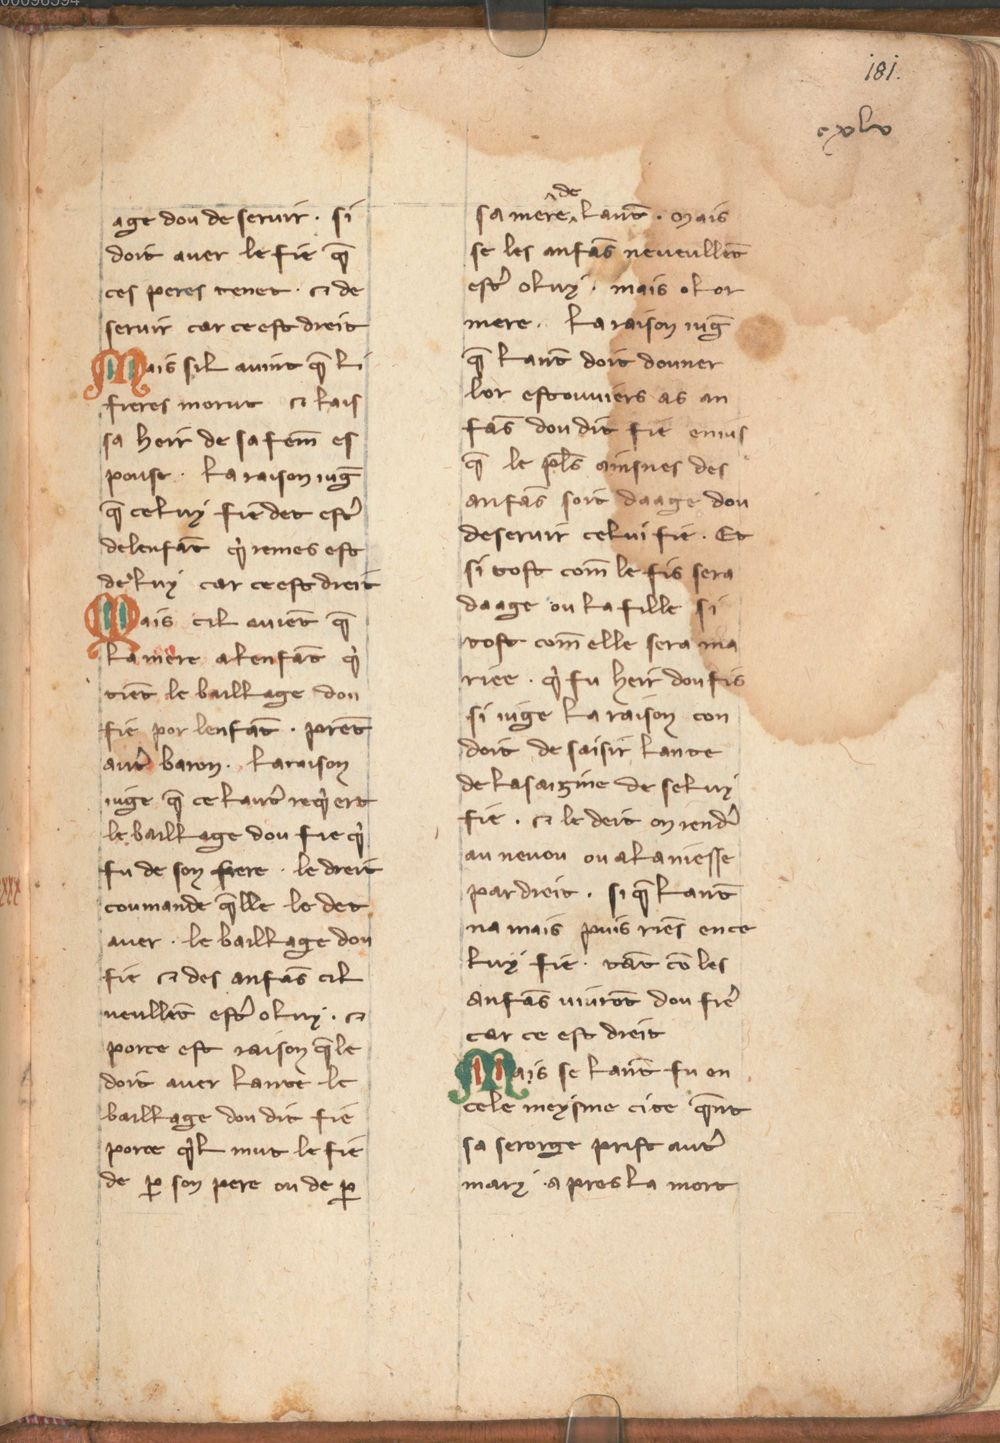 00096394
181.
cxlv
age dou deseruir . si
doit auer le fie q̄
ces peres tenet . ⁊ de
seruir car ce est dreit
Mais sil auint q̄ li
freres morut ⁊ lais
sa heir de sa fem̄ es
pouse . La raison iuḡ
q̄ celuy fie det estr̾
de lenfāt q̍ remes est
de luy car ce est dreit
Mais cil auiēt q̄
la mere a lenfāt q̍
tiēt le baillage dou
fie por lenfāt . prēt
autr̾ baron . La raison
iuge q̄ ce lautr̾ req̍ert
le baillage dou fie q̍
fu de son frere . le dreit
coumande q̄lle le det
auer . le baillage dou
fie ⁊ des anfās cil
ueullēt estr̾ o luy . ⁊
porce est raison q̄ le
doit auer lante le
baillage dou dit fie
porce q̍l mut le fie
de ꝑ son pere ou de ꝑ
sa mere de lant̄ . Mais
se les anfās ne ueullēt
estr̾ o luy . mais o lor
mere . La raison iuḡ
q̄ lant̄ doit donner
lor estouuiers as an
fās dou dit fie enuis
q̄ le pl̄s ainsnes des
anfās soit daage dou
deseruir celui fie . Et
si tost com̄ le fis sera
daage ou la fille si
tost com̄ elle sera ma
riee . q̍ fu heir dou fis
si iuge la raison con
doit desaisir lante
de la saizine de seluy
fie . ⁊ le deit on rendr̾
au neuou ou a la niesse
par dreit . si q̄ lant̄
na mais puis riēs en ce
luy fie . tāt cō les
anfās uiurōt dou frē
car ce est dreit
Mais se lant̄ fu en
cele meysme cite q̄nt
sa serorge prist autr̾
mary . apres la mort
xxx